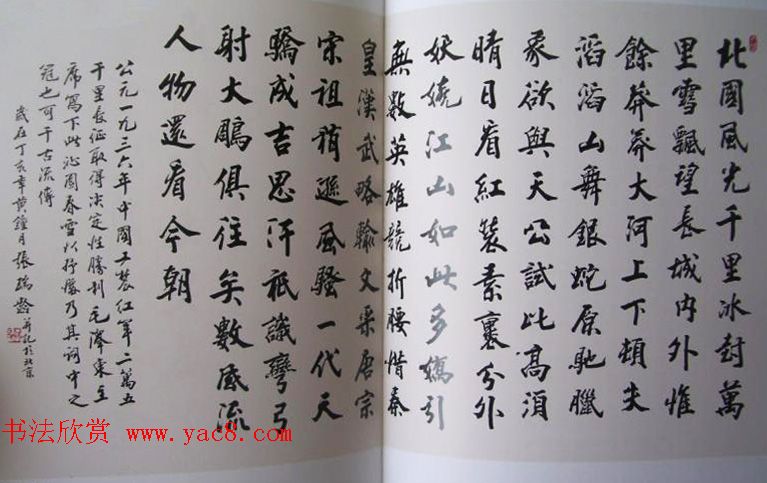 北國風光千里冰封萬
里雪飄望長城內外惟
餘莽莽大河上下頓失
滔滔山舞銀蛇原馳臘
象欲與天公試比高須
晴日看紅裝素裹分外
妖嬈江山如此多嬌引
無數英雄競折腰惜秦
皇漢武略輸文采唐宗
宋祖稍遜風騷一代天
驕成吉思汗祇識彎弓
射大鵰俱往矣數風流
人物還看今朝
公元一九三六年中國工農紅軍二萬五
千里長征取得決定性勝利毛澤東主
席寫下此沁園春雪以抒感乃其詞中之
冠也可千古流傳
歲在丁亥年黃鐘月張瑞齡并記於北京
书法欣赏 www.yac8.com